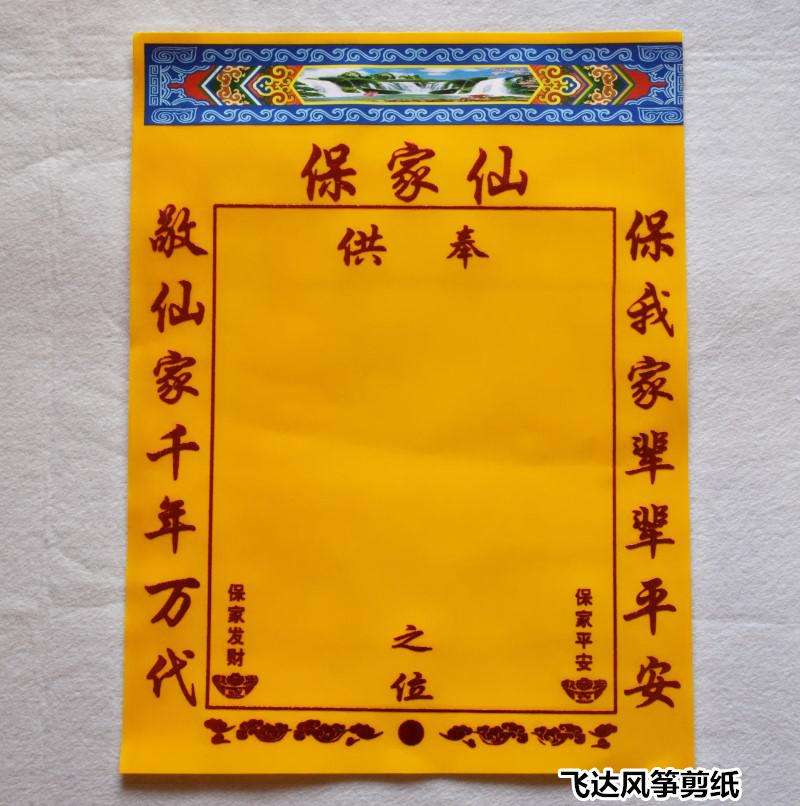 保家仙
供奉
敬仙家千年万代
保我家辈辈平安
保家发财
保家平安
之位
飞达风筝剪纸